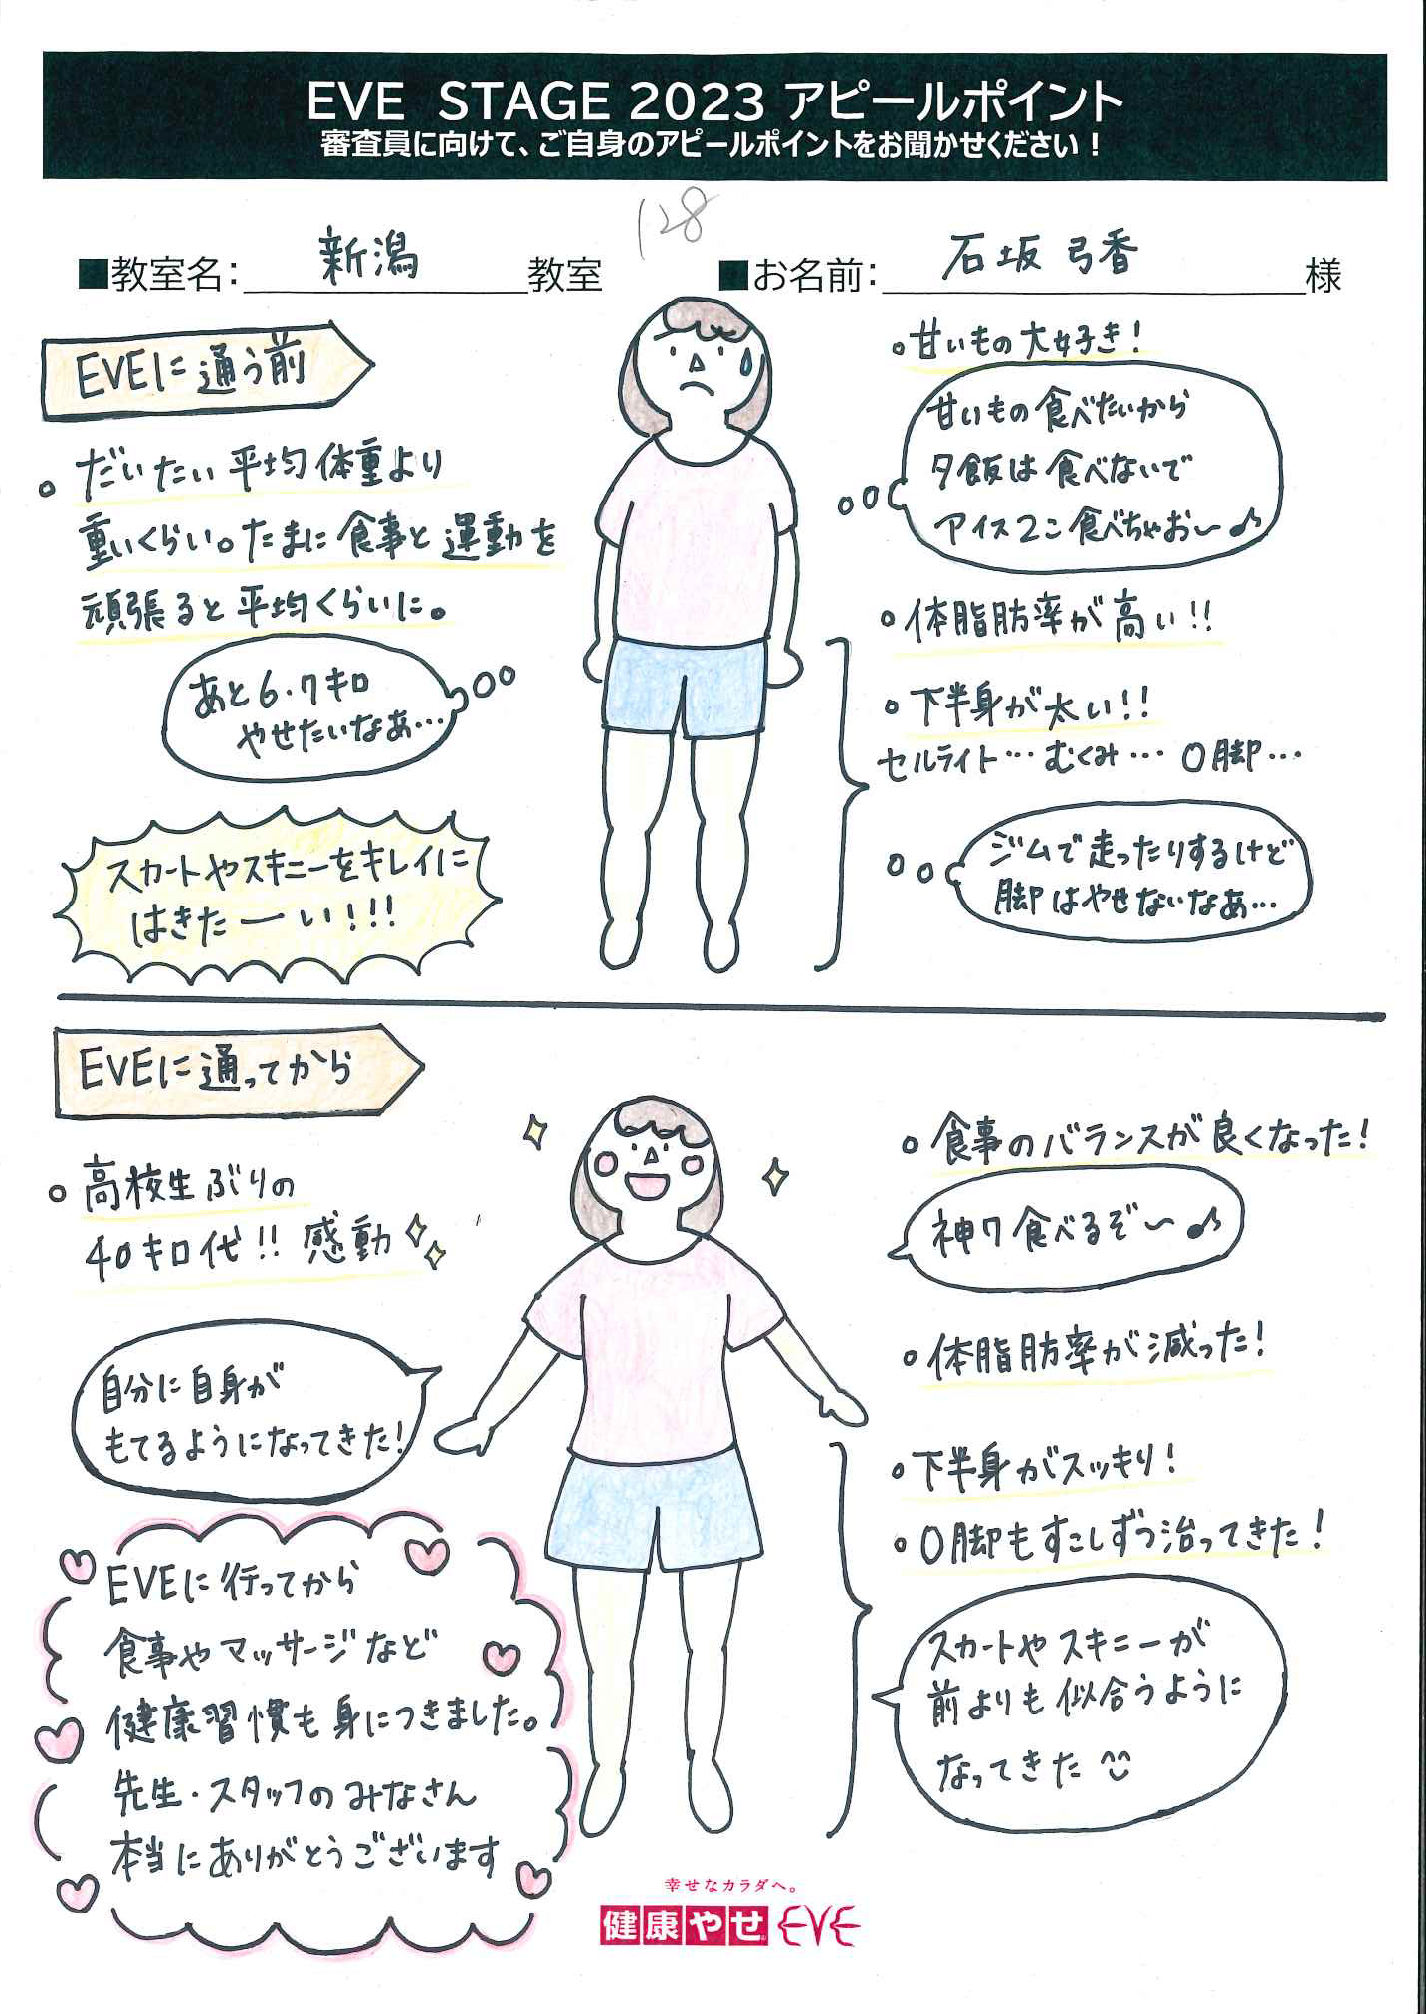 EVE STAGE 2023 アピールポイント
審査員に向けて、ご自身のアピールポイントをお聞かせください！
128
■教室名：新潟教室
■お名前：石坂 弓香様
EVEに通う前
。だいたい平均体重より
重いくらい。たまに食事と運動を
頑張ると平均くらいに。
あと6・7キロ
やせたいなあ…
スカートやスキニーをキレイに
はきたーい!!!
。甘いもの大好き!
甘いもの食べたいから
夕飯は食べないで
アイス2こ食べちゃお〜♪
。体脂肪率が高い!!
。下半身が太い!!
セルライト…むくみ…O脚…
ジムで走ったりするけど
脚はやせないなあ…
EVEに通ってから
。高校生ぶりの
40キロ代!!感動
自分に自身が
もてるようになってきた!
EVEに行ってから
食事やマッサージなど
健康習慣も身につきました。
先生・スタッフのみなさん
本当にありがとうございます
。食事のバランスが良くなった!
神7食べるぞ〜♪
。体脂肪率が減った!
。下半身がスッキリ!
。O脚もすこしずつ治ってきた!
スカートやスキニーが
前よりも似合うように
なってきた
幸せなカラダへ。
健康やせEVE